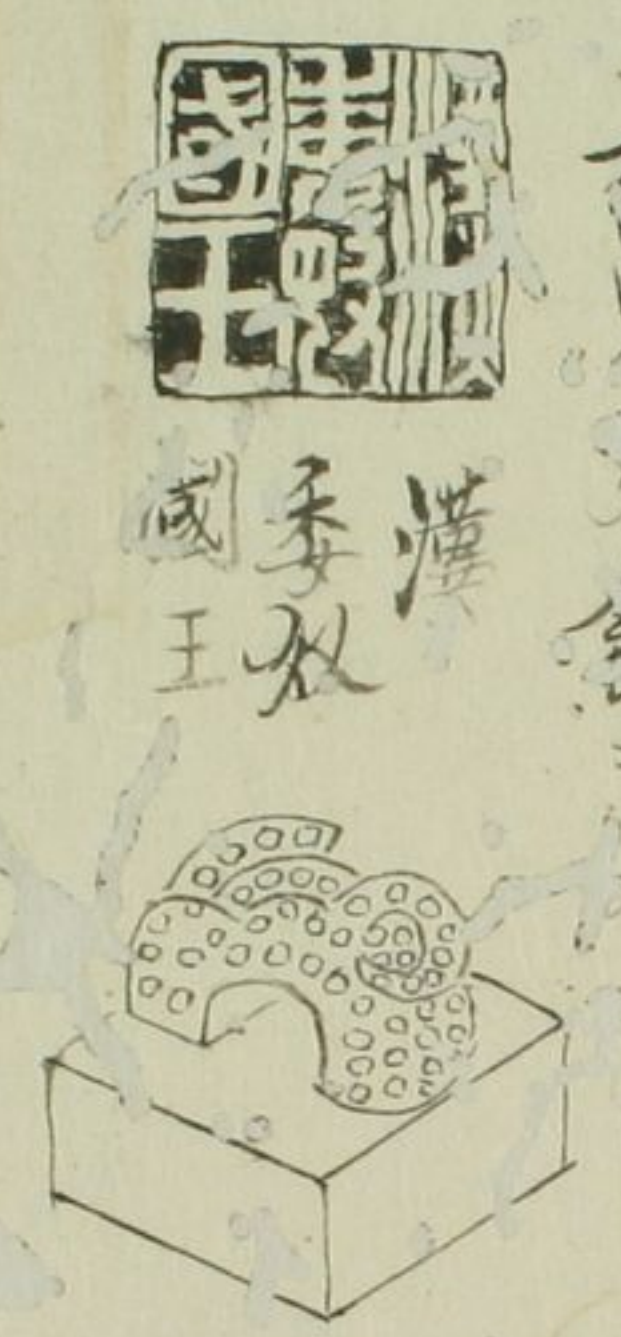 漢
委奴
國王
漢
委奴
國王